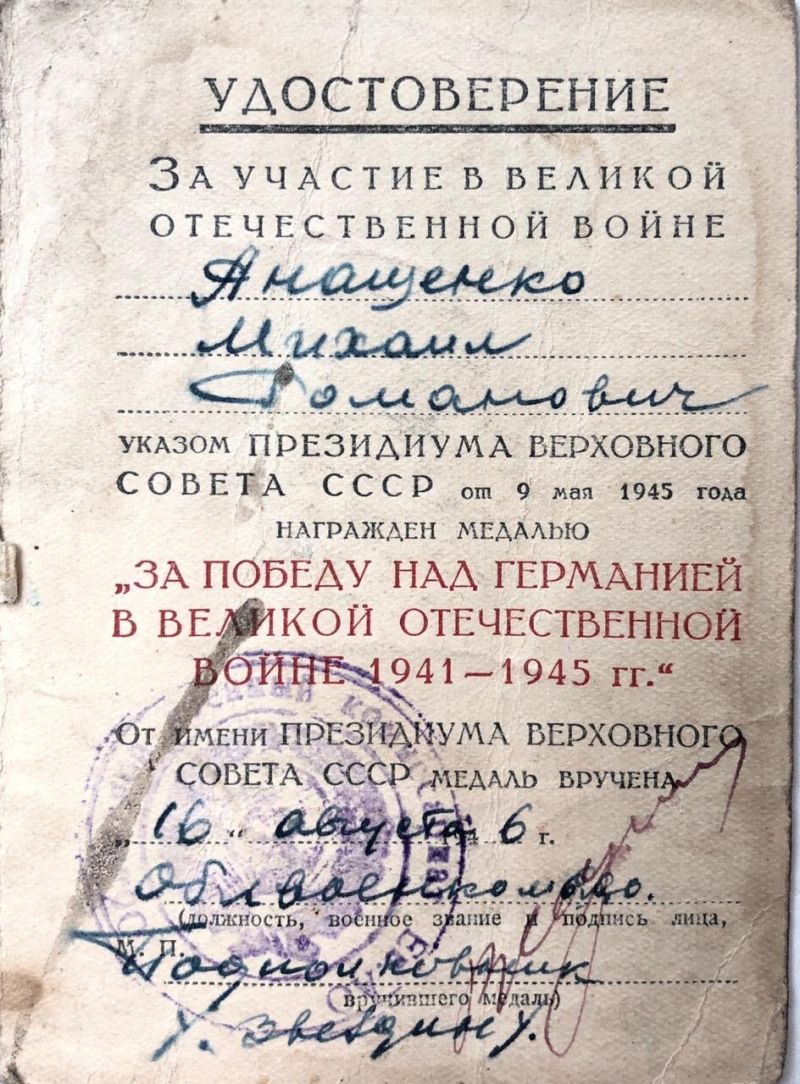 УДОСТОВЕРЕНИЕ
ЗА УЧАСТИЕ В ВЕЛИКОЙ
ОТЕЧЕСТВЕННОЙ ВОЙНЕ
Анащенко
Михаил
Романович
УКАЗОМ ПРЕЗИДИУМА ВЕРХОВНОГО
СОВЕТА СССР от 9 мая 1945 года
НАГРАЖДЕН МЕДАЛЬЮ
„ЗА ПОБЕДУ НАД ГЕРМАНИЕЙ
В ВЕЛИКОЙ ОТЕЧЕСТВЕННОЙ
ВОЙНЕ 1941—1945 гг.“
ОТ ИМЕНИ ПРЕЗИДИУМА ВЕРХОВНОГО
СОВЕТА СССР МЕДАЛЬ ВРУЧЕНА
„16“ августа 194 6 г.
(должность, военное звание и подпись лица,
М. П.
Подполковник
вручившего медаль)